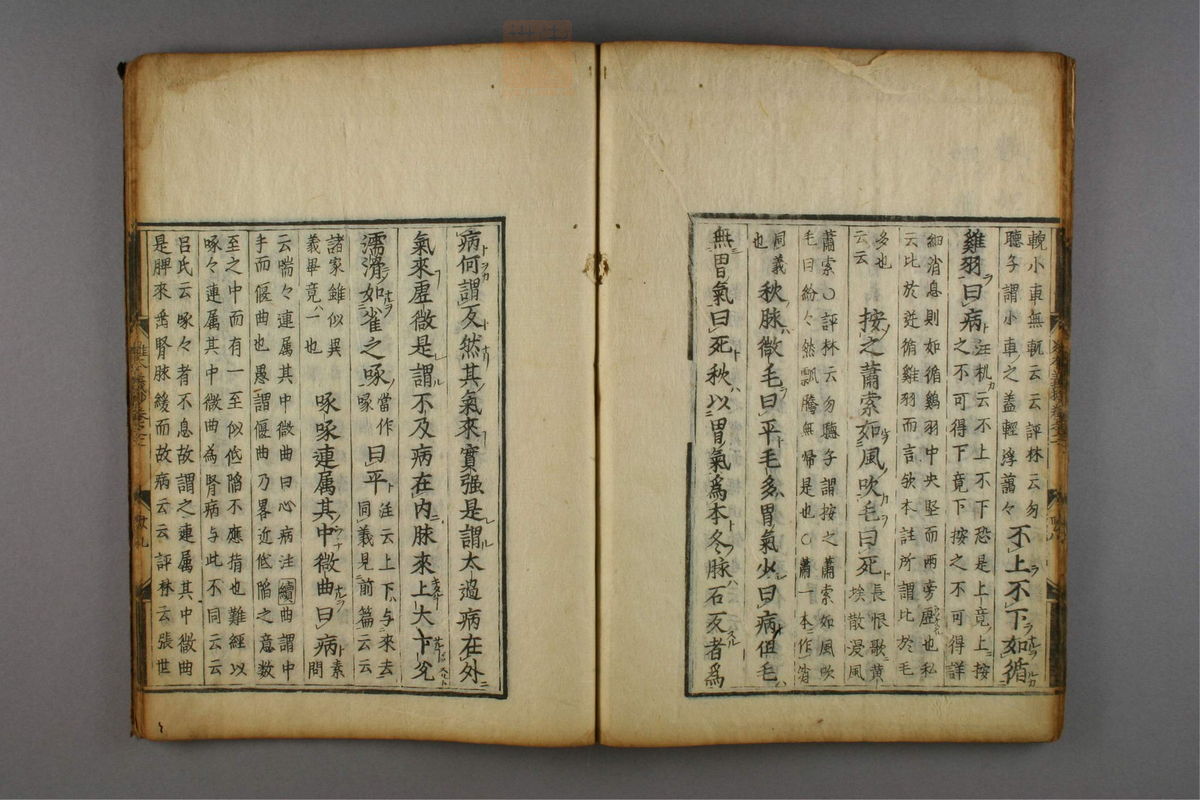 輗小車無軏云云評林云勿
聽子謂小車之蓋輕浮藹々不上不下如循
雞羽曰病注机云不上不下恐是上竟上按
之不可得下竟下按之不可得詳
細消息則如循鷄羽中央堅而兩旁虛也私
云比於逆循雞羽而言欤本註所謂比於毛
多也
云云按之蕭索如風吹毛曰死長恨歌黄
埃散漫風
蕭索○評林云勿聽子謂按之蕭索如風吹
毛曰紛々然飄騰無帰是也○蕭一本作
同義
也秋脉微毛曰平毛多胃氣少曰病但毛
無胃氣曰死秋以胃氣爲本冬脉石反者爲
病何謂反然其氣來實强是謂太過病在外
氣來虛微是謂不及病在内脉來上大下兊
濡滑如雀之啄當作
啄曰平注云上下与來去
同義見前篇云云
諸家雖似異
義畢竟一也啄啄連属其中微曲曰病素問
云喘々連属其中微曲曰心病注續曲謂中
手而偃曲也愚謂偃曲乃畧近低陷之意数
至之中而有一至似低陷不應指也難經以
啄々連属其中微曲為腎病与此不同云云
吕氏云啄々者不息故謂之連属其中微曲
是脾來乗腎脉緩而故病云云評林云張世